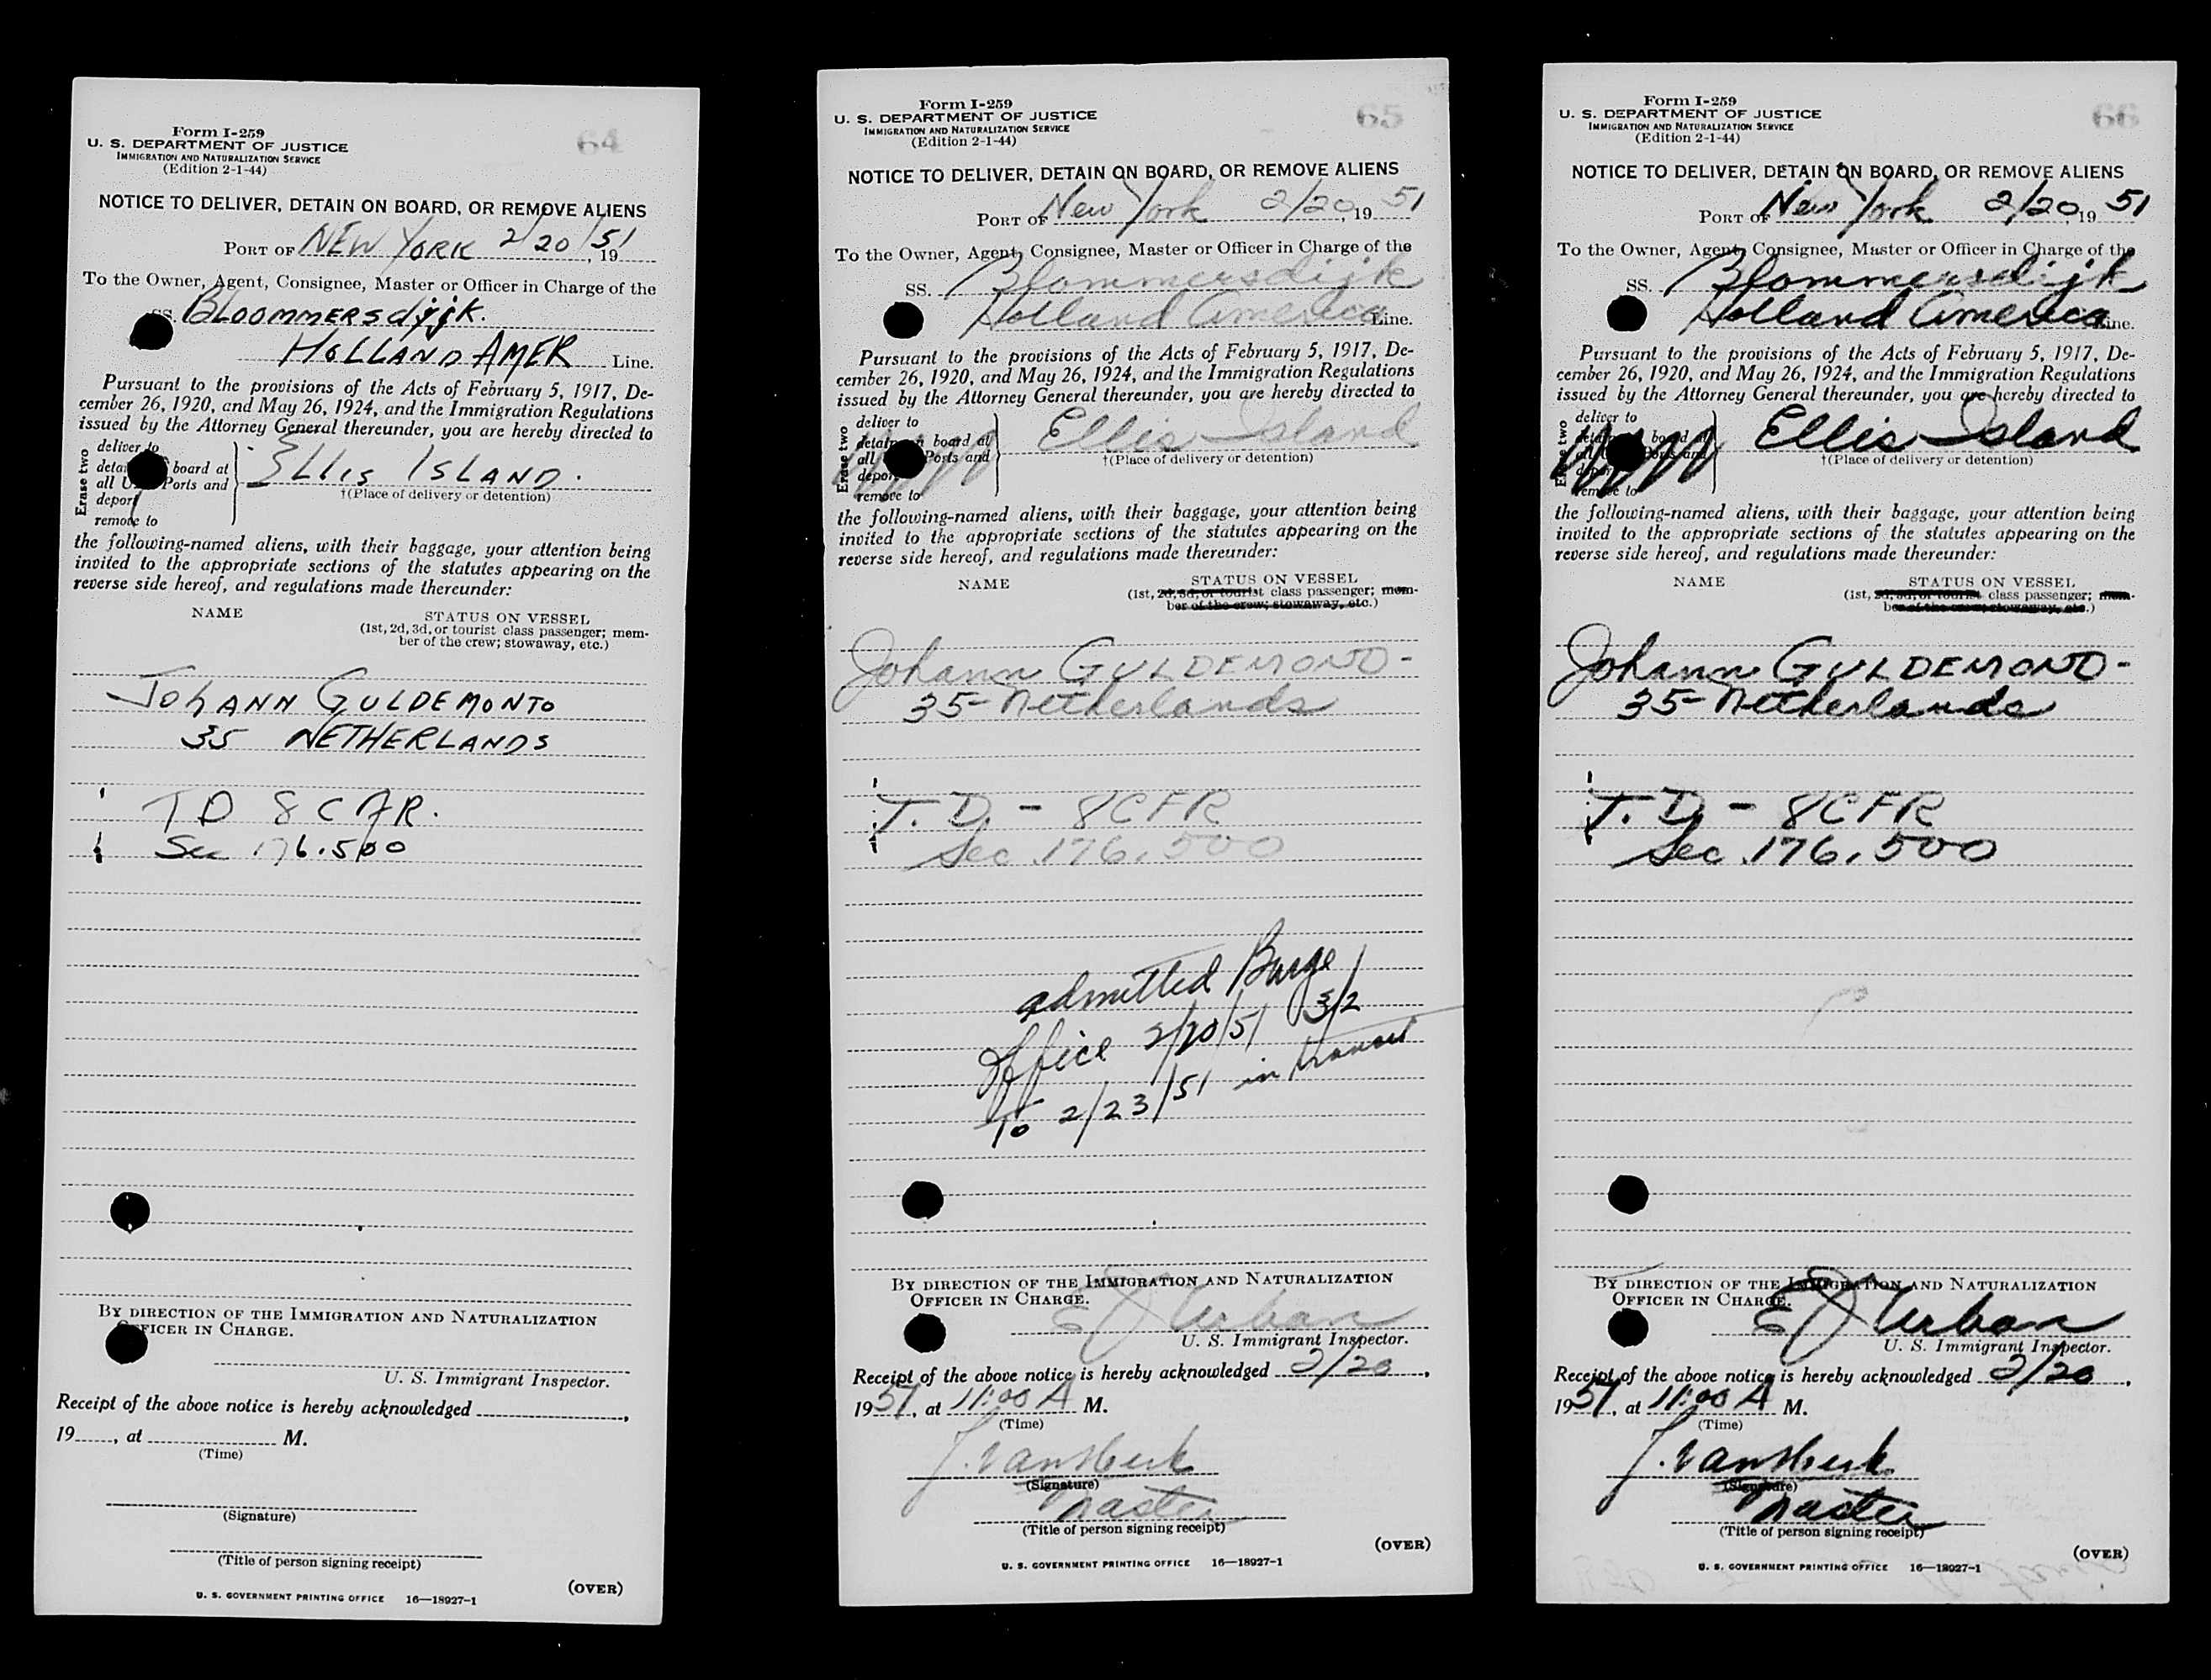 64
Form I-259
U. S. DEPARTMENT OF JUSTICE
IMMIGRATION AND NATURALIZATION SERVICE
(Edition 2-1-44)
NOTICE TO DELIVER, DETAIN ON BOARD, OR REMOVE ALIENS
PORT OF NEW YORK 2/20/51, 19
To the Owner, Agent, Consignee, Master or Officer in Charge of the
SS. BLOOMMERSdijk.
HOLLAND AMER Line.
Pursuant to the provisions of the Acts of February 5, 1917, De-
cember 26, 1920, and May 26, 1924, and the Immigration Regulations
issued by the Attorney General thereunder, you are hereby directed to
Erase two
deliver to
board at
all Ports and
deport
remove to
ELLIS ISLAND.
†(Place of delivery or detention)
the following-named aliens, with their baggage, your attention being
invited to the appropriate sections of the statutes appearing on the
reverse side hereof, and regulations made thereunder:
NAME
STATUS ON VESSEL
(1st, 2d, 3d, or tourist class passenger; mem-
ber of the crew; stowaway, etc.)
JOHANN GULDEMONTO
35 NETHERLANDS
TD 8 CFR.
Sec 176.500
BY DIRECTION OF THE IMMIGRATION AND NATURALIZATION
OFFICER IN CHARGE.
U. S. Immigrant Inspector.
Receipt of the above notice is hereby acknowledged
19, at M.
(Time)
(Signature)
(Title of person signing receipt)
(OVER)
U. S. GOVERNMENT PRINTING OFFICE 16—18927-1
65
Form I-259
U. S. DEPARTMENT OF JUSTICE
IMMIGRATION AND NATURALIZATION SERVICE
(Edition 2-1-44)
NOTICE TO DELIVER, DETAIN ON BOARD, OR REMOVE ALIENS
PORT OF New York 2/20, 19 51
To the Owner, Agent, Consignee, Master or Officer in Charge of the
SS. Blommersdijk
Holland America Line.
Pursuant to the provisions of the Acts of February 5, 1917, De-
cember 26, 1920, and May 26, 1924, and the Immigration Regulations
issued by the Attorney General thereunder, you are hereby directed to
Erase two
deliver to
board at
all Ports and
deport
remove to
Ellis Island
†(Place of delivery or detention)
the following-named aliens, with their baggage, your attention being
invited to the appropriate sections of the statutes appearing on the
reverse side hereof, and regulations made thereunder:
NAME
STATUS ON VESSEL
(1st, 2d, 3d, or tourist class passenger; mem-
ber of the crew; stowaway, etc.)
Johann GULDEMOND-
35-Netherlands
T. D. - 8CFR
Sec. 176.500
admitted Barge
Office 2/20/51 3/2
To 2/23/51 in transit
BY DIRECTION OF THE IMMIGRATION AND NATURALIZATION
OFFICER IN CHARGE.
EJ Urban
U. S. Immigrant Inspector.
Receipt of the above notice is hereby acknowledged 2/20,
1951, at 11:00 A M.
(Time)
(Signature)
Master
(Title of person signing receipt)
(OVER)
U. S. GOVERNMENT PRINTING OFFICE 16—18927-1
66
Form I-259
U. S. DEPARTMENT OF JUSTICE
IMMIGRATION AND NATURALIZATION SERVICE
(Edition 2-1-44)
NOTICE TO DELIVER, DETAIN ON BOARD, OR REMOVE ALIENS
PORT OF New York 2/20, 19 51
To the Owner, Agent, Consignee, Master or Officer in Charge of the
SS. Blommersdijk
Holland America Line.
Pursuant to the provisions of the Acts of February 5, 1917, De-
cember 26, 1920, and May 26, 1924, and the Immigration Regulations
issued by the Attorney General thereunder, you are hereby directed to
Erase two
deliver to
board at
Ports and
remove to
Ellis Island
†(Place of delivery or detention)
the following-named aliens, with their baggage, your attention being
invited to the appropriate sections of the statutes appearing on the
reverse side hereof, and regulations made thereunder:
NAME
STATUS ON VESSEL
(1st, 2d, 3d, or tourist class passenger; mem-
ber of the crew; stowaway, etc.)
Johann GULDEMOND-
35-Netherlands
T. D. - 8CFR
Sec. 176.500
BY DIRECTION OF THE IMMIGRATION AND NATURALIZATION
OFFICER IN CHARGE.
EJ Urban
U. S. Immigrant Inspector.
Receipt of the above notice is hereby acknowledged 2/20,
1951, at 11:00 A M.
(Time)
(Signature)
Master
(Title of person signing receipt)
(OVER)
U. S. GOVERNMENT PRINTING OFFICE 16—18927-1